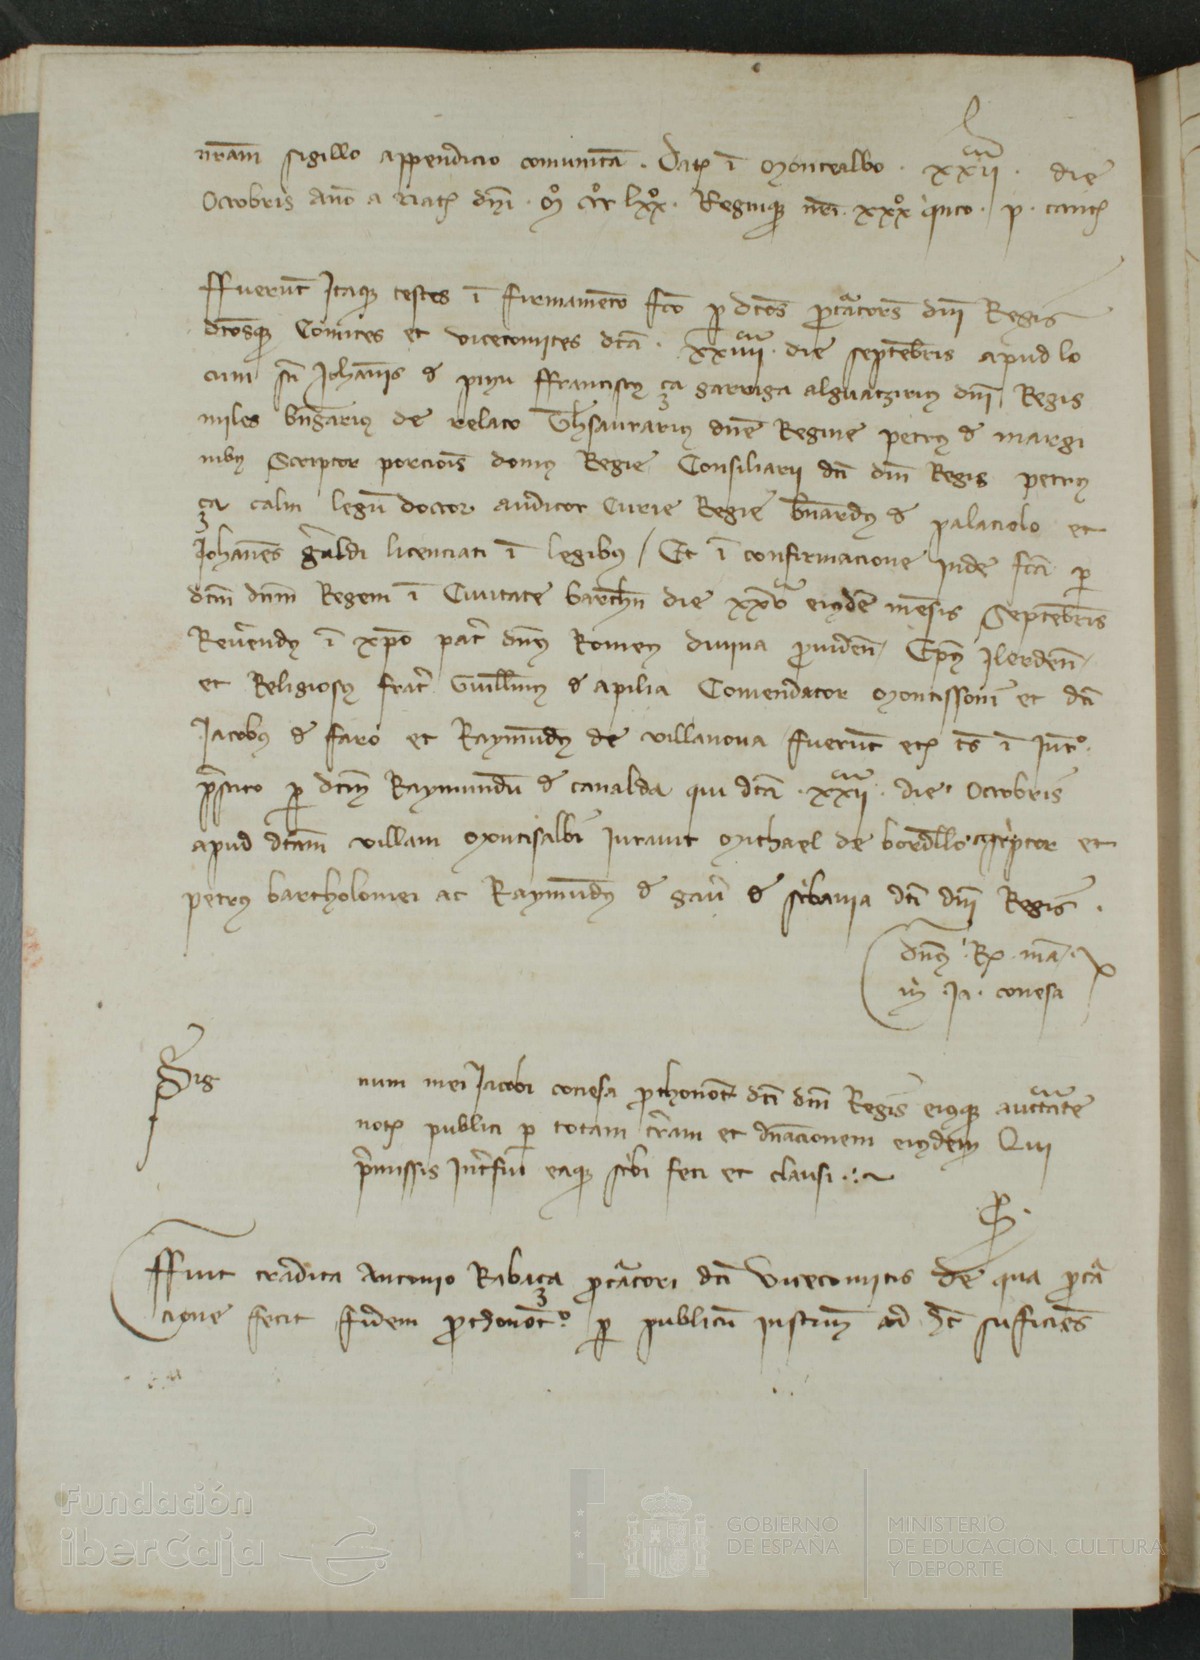 nram̄ sigillo appendicio comunitā. Dat̄ ī Montealbo. xxii. die
Octobris anō a natē dn̄i. Mº CCCº lxxº. Regniqꝫ nr̄i. xxxº qnto. p. canc̄
ffuerūt Itaqꝫ testes ī firmamēto fc̄o p dc̄os p̄cātor̄s dn̄i Regis
dc̄osqꝫ Comites et vicecomites dc̄a. xxiiii. die septēbris apud lo
cum sc̄i Johānis d pinu ffrancisc9 ça garriga alguatziri9 dn̄i Regis
miles bn̄gari9 de relato Th̄saurari9 dn̄e Regine petr9 d margi
nib9 Scriptor porciōis dom9 Regie Consiliarii dc̄i dn̄i Regis petr9
ça calm legū doctor auditor Curie Regie bn̄ard9 d palaciolo et
Johānes gr̄aldi licenciati ī legib9 / Et ī confirmacione inde fc̄a p
dc̄m dn̄m Regem ī Ciuitate barchn̄ die xxv eiusdē mēsis Septēbris
Reuēnd9 ī xp̄o pat̄ dn̄s Rome9 diuina p̄uidēn Ep̄s Ilerdēn
et Religios9 frat̄ Guillm̄9 d apilia Comendator Montissoni et dc̄i
Jacob9 d faro et Raymūd9 de villanoua fuerūt etꝫ t̄s ī Jur̄º
p̄stito p dc̄m Raymundū d canalda qui dc̄a. xxii. die Octobris
apud dc̄am villam Montisalbi iurauit Michael de bordello scriptor et
petr9 bartholomei ac Raymūd9 d gau d sc̄bania dc̄i dn̄i Regis.
dn̄s Rx. mā.
m Ja. conesa
Sig num mei Jacobi conesa p̄thonot̄ dc̄i dn̄i Regis eiusqꝫ auctāte
not̄ publici p totam t̄ram et dn̄acionem eiusdem Qui
p̄missis int̄fui eaqꝫ sc̄bi feci et clausi
P.
ffuit tradita Antonio Rabaça p̄cātori dc̄i vicecomitis de qua p̄cā
cione fecit fidem p̄thonot̄º p publicū instrum̄ ad hc̄ suficiēs
Fundación
iberCaja
GOBIERNO
DE ESPAÑA
MINISTERIO
DE EDUCACIÓN, CULTURA
Y DEPORTE